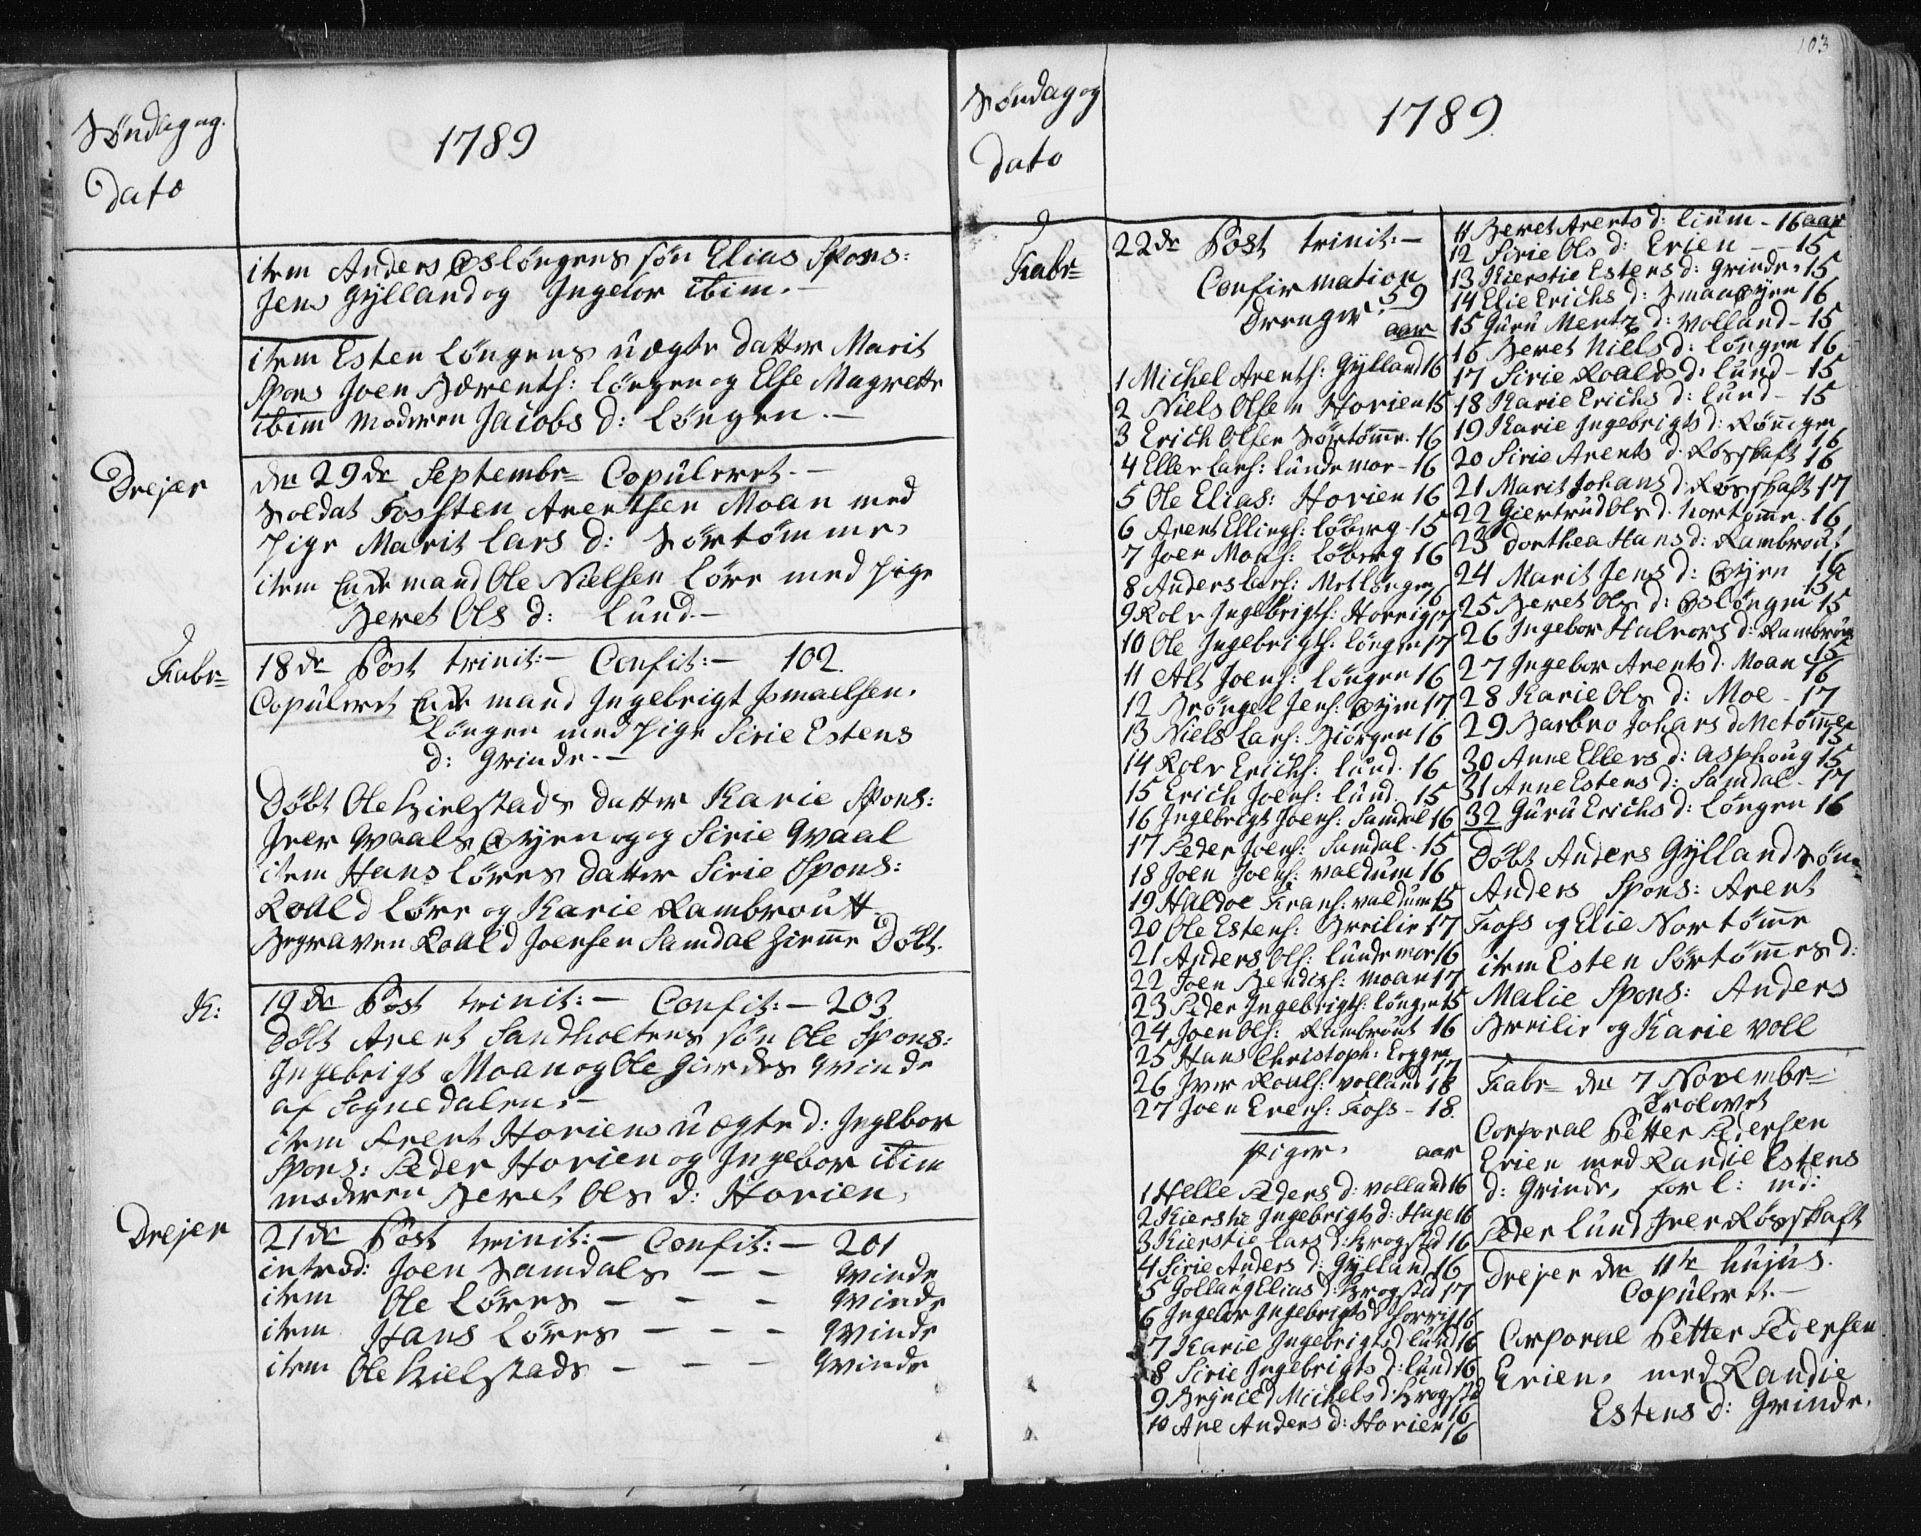 Søndag og
Dato
1789
item Anders Øsløngens søn Elias Spons:
Jens Gylland og Ingebor ibim. —
item Esten Løngens uægte datter Marit
Spons Joen Bærenths: Løngen og Else Magrette
ibim Moderen Jacobs d: Løngen. —
Drejer
den 29de Septembr= Copuleret. —
Soldat Fossten Arentsen Moan med
Pige Marit Lars d: Sørtømme,
item Enkemand Ole Nielsen Løre med Pige
Beret Ols d: Lund. —
Fabr=
18de Post trinit: — Confit: — 102.
Copuleret Enkemand Ingebrigt Ismaelsen.
Løngen med Pige Sirie Estens
d: Grinde. —
Døbt Ole Kielstads datter Karie Spons:
Iver Qvaals Øyen og og Sirie Qvaal
item Hans Løres datter Sirie Spons:
Roald Løre og Karie Rambroutt.
Begraven Roald Joensen Samdal Hiemme Døbt.
K:
19de Post trinit: — Confit: — 203
Døbt Arent Sandholtens søn Ole Spons:
Ingebrigt Moan og Ole Giærdes Qvinde
af Sognedalen. —
item Arent Horiens uægte d: Ingebor
Spons: Peder Horien og Ingebor ibim
moderen Beret Ols d: Horien,
Drejer
21de Post trinit: — Confit: — 201
introd: Joen Samdals — — Qvinde
item Ole Løres — — — Qvinde
item Hans Løres — — — Qvinde
item Ole Kielstads — — — Qvinde
103
Søndag og
Dato
1789.
Fabr=
22de Post trinit: —
Confirmation
59
Drenger.
aar
1 Michel Arenths: Gylland 16
2 Niels Olsen Horien 15
3 Erich Olsen Sørtømme. 16
4 Eller Lars: Lundemor - 16
5 Ole Elias: Horien 16
6 Arent Ellings: Løberg - 15
7 Joen Mons: Løberg 16
8 Anders Lars: Metløngen 16
9 Rolv Ingebrigts: Horrig 17
10 Ole Ingebrigts: Løngen 17
11 Alt Joens: Løngen 16
12 Brøngel Jens: Øyen 17
13 Niels Lars: Biørgen 16
14 Rolv Erichs: Lund. 16
15 Erich Joens: Lund. 15
16 Ingebrigt Joens: Samdal 16
17 Peder Joens: Samdal - 15
18 Joen Joens: Valdum 16
19 Haldoe Frans: Valdum 15
20 Ole Estens: Breilie 17
21 Anders Ols: Lundemor 16
22 Joen Bendixs: Moan 17
23 Peder Ingebrigts: Løngen 15
24 Joen Ols: Rambrout 16
25 Hans Christoph: Eggen
17
26 Iver Roals: Volland 18
27 Joen Evens: Foss - 18.
Piger. aar
1 Helle Peders d: Volland 16
2 Kierstie Ingebrigts d: Huge 16
3 Kierstie Lars d: Krogstad 16
4 Sirie Anders d: Gylland 16
5 Gollaug Elias d: Krogstad 17
6 Ingebor Ingebrigts d: Horrig 16
7 Karie Ingebrigts d: Lund 16
8 Sirie Ingebrigts d: Lund 16
9 Brynild Michels d: Krogstad
16
10 Ane Anders d: Horien 16
11 Beret Arents d: Lium - 16 aar
12 Sirie Ols d: Erien - - 15
13 Kierstie Estens d: Grinde. 15
14 Elie Erichs d: Smaaøyen 16
15 Guru Mentz d: Volland - 15
16 Beret Niels d: Løngen 16
17 Sirie Roalds d: Lund - 15
18 Karie Erichs d: Lund - 15
19 Karie Ingebrigts d: Rønegen
16
20 Sirie Arents d. Røsskaft 16
21 Marit Johans d: Røsskaft 17
22 Giertrud Ols d. Nortømme. 16
23 Dorthea Hans d: Rambrout
16
24 Marit Jens d: Øyen
15
25 Beret Ols d: Øsløngen 15
26 Ingebor Halvors d: Rambrout
15
27 Ingebor Arents d. Moan 16
28 Karie Ols d: Moe - 17
29 Barbro Johans d Metømme
15
30 Anne Ellers d: Asphoug 15
31 Anne Estens d: Samdal - 17
32 Guru Erichs d: Løngen 16
Døbt Anders Gylland søn
Anders Spons: Arent
Foss og Elie Nortømme
item Esten Sørtømmes d:
Malie Spons: Anders
Breilie og Karie Voll
Fabr= den 7 Novembr=
Trolovet
Corporal Petter Pedersen
Erien med Randie Estens
d: Grinde, forl: md:
Peder Lund Iver Røsskaft
Drejer den 11te hujus.
Copuleret. —
Corporal Petter Pedersen
Erien, med Randie
Estens d: Grinde.